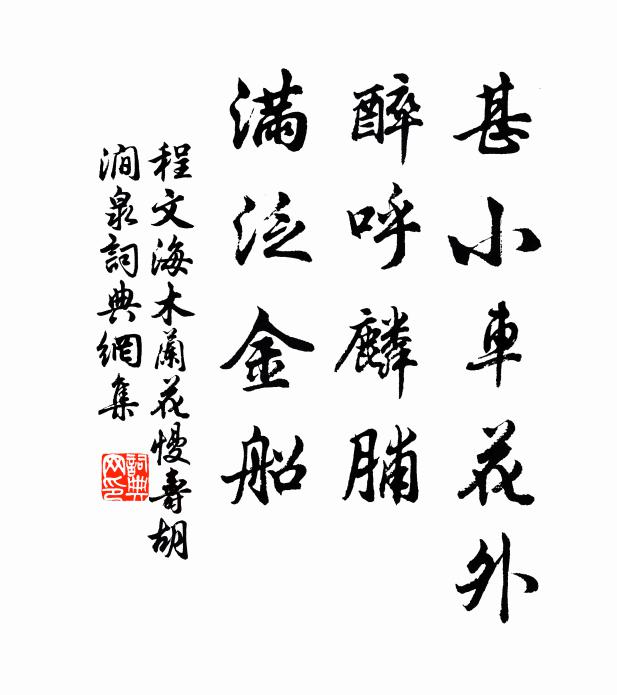 甚小車花外
醉呼麟脯
滿泛金船
程文海木蘭花慢壽胡
澗泉詞典網集
詞典網印